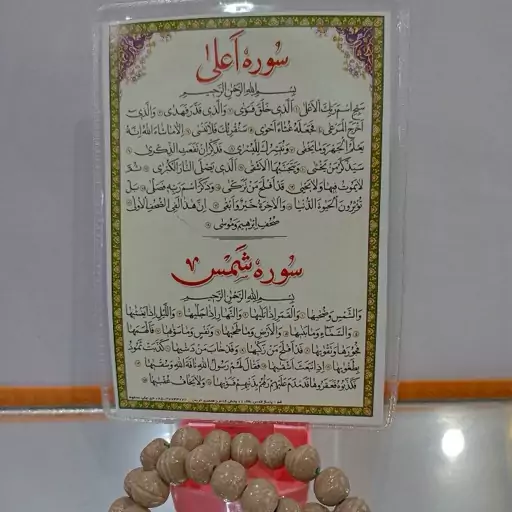 سوره اَعلیٰ
بِسْمِ اللهِ الرَّحْمٰنِ الرَّحِیمِ
سَبِّحِ اسْمَ رَبِّكَ الْاَعْلَى الَّذِی خَلَقَ فَسَوّٰى وَالَّذِی قَدَّرَ فَهَدٰى وَالَّذِی
اَخْرَجَ الْمَرْعٰى فَجَعَلَهُ غُثَاءً اَحْوٰى سَنُقْرِئُكَ فَلَا تَنْسٰى اِلَّا مَا شَاءَ اللهُ اِنَّهُ
یَعْلَمُ الْجَهْرَ وَمَا یَخْفٰى وَنُیَسِّرُكَ لِلْیُسْرٰى فَذَكِّرْ اِنْ نَفَعَتِ الذِّكْرٰى
سَیَذَّكَّرُ مَنْ یَخْشٰى وَیَتَجَنَّبُهَا الْاَشْقَى الَّذِی یَصْلَى النَّارَ الْكُبْرٰى ثُمَّ
لَا یَمُوتُ فِیهَا وَلَا یَحْیٰى قَدْ اَفْلَحَ مَنْ تَزَكّٰى وَذَكَرَ اسْمَ رَبِّهِ فَصَلّٰى بَلْ
تُؤْثِرُونَ الْحَیٰوةَ الدُّنْیَا وَالْاٰخِرَةُ خَیْرٌ وَاَبْقٰى اِنَّ هٰذَا لَفِی الصُّحُفِ الْاُولٰى
صُحُفِ اِبْرٰهِیمَ وَمُوسٰى
سوره شَمس
بِسْمِ اللهِ الرَّحْمٰنِ الرَّحِیمِ
وَالشَّمْسِ وَضُحٰیهَا وَالْقَمَرِ اِذَا تَلٰیهَا وَالنَّهَارِ اِذَا جَلّٰیهَا وَاللَّیْلِ اِذَا یَغْشٰیهَا
وَالسَّمَاءِ وَمَا بَنٰیهَا وَالْاَرْضِ وَمَا طَحٰیهَا وَنَفْسٍ وَمَا سَوّٰیهَا فَاَلْهَمَهَا
فُجُورَهَا وَتَقْوٰیهَا قَدْ اَفْلَحَ مَنْ زَكّٰیهَا وَقَدْ خَابَ مَنْ دَسّٰیهَا كَذَّبَتْ ثَمُودُ
بِطَغْوٰیهَا اِذِ انْبَعَثَ اَشْقٰیهَا فَقَالَ لَهُمْ رَسُولُ اللهِ نَاقَةَ اللهِ وَسُقْیٰهَا
فَكَذَّبُوهُ فَعَقَرُوهَا فَدَمْدَمَ عَلَیْهِمْ رَبُّهُمْ بِذَنْبِهِمْ فَسَوّٰیهَا وَلَا یَخَافُ عُقْبٰیهَا